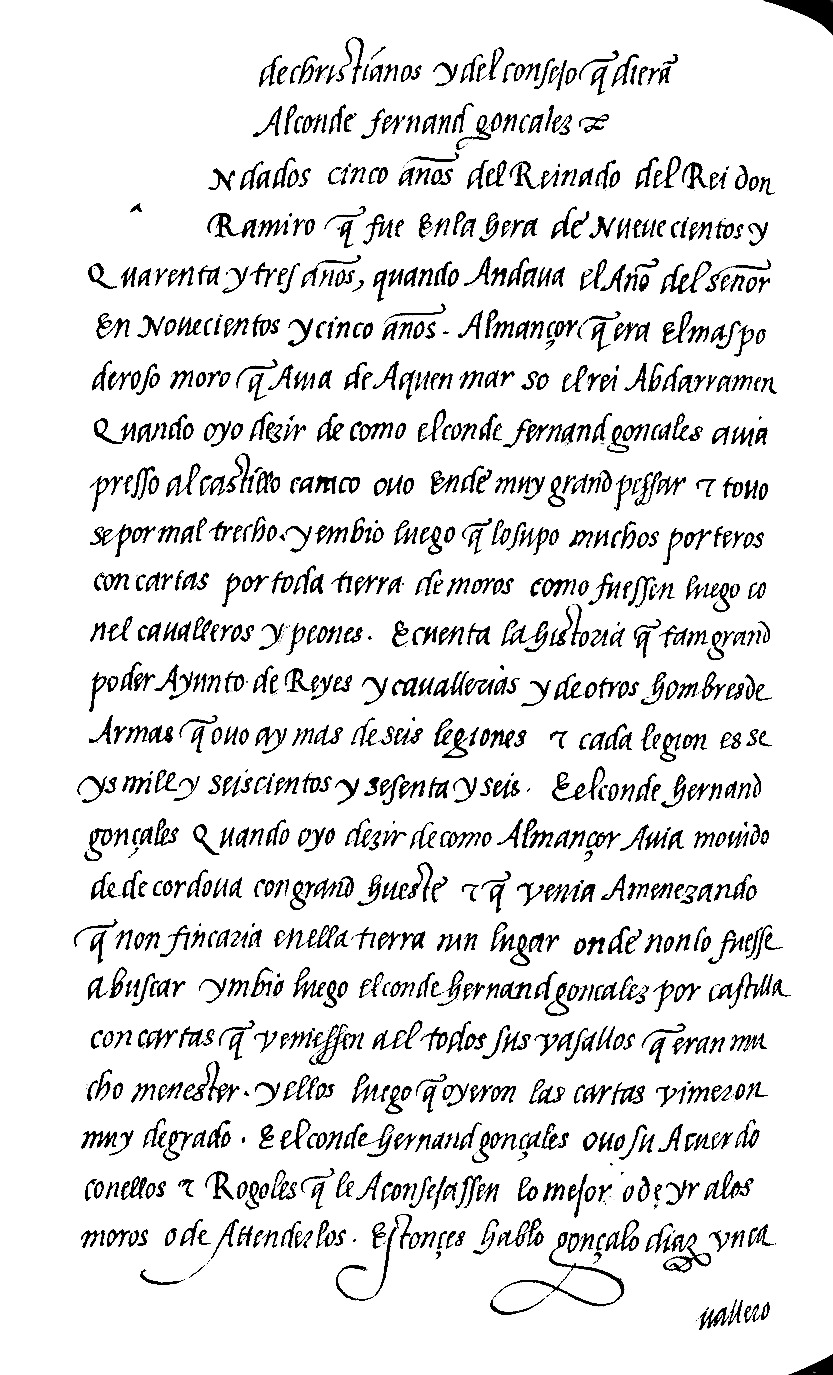 de christianos y del consejo q̃ dierã
Al conde fernand goncalez
Ndados cinco años del Reinado del Rei don
Ramiro q̃ fue En la hera de Nueuecientos y
Quarenta y tres años, quando Andaua el Año del señor
En Nouecientos y cinco años. Almançor q̃ era El mas po
deroso moro q̃ Auia de Aquen mar so el rei Abdarramen
Quando oyo dezir de como el conde fernand goncales auia
presso al castillo caraco ouo Ende muy grand pessar τ touo
se por mal trecho. y embio luego q̃ lo supo muchos porteros
con cartas por toda tierra de moros como fuessen luego co
nel caualleros y peones. E cuenta la historia q̃ tam grand
poder Ayunto de Reyes y cauallerias y de otros hombres de
Armas q̃ ouo ay mas de seis legiones τ cada legion es se
ys mill y seiscientos y sesenta y seis. E el conde hernand
gonçales Quando oyo dezir de como Almançor Auia mouido
de de cordoua con grand hueste τ q̃ venia Amenezando
q̃ non fincaria en ella tierra nin lugar onde non lo fuesse
a buscar ymbio luego el conde hernand goncalez por castilla
con cartas q̃ veniessen a el todos sus vasallos q̃ eran mu
cho menester. y ellos luego q̃ oyeron las cartas vinieron
muy de grado. E el conde hernand gonçales ouo su Acuerdo
conellos τ Rogoles q̃ le Aconsejassen lo mejor o de yr a los
moros o de Attenderlos. Estonçes hablo gonçalo diaz vn ca
uallero